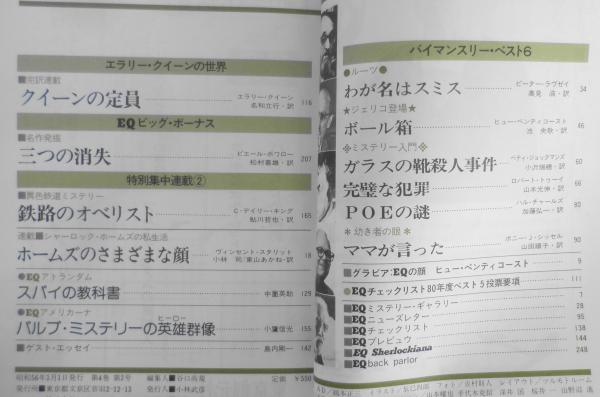 エラリー・クイーンの世界
■完訳連載
クイーンの定員
エラリー・クイーン
名和立行・訳
116
EQビッグ・ボーナス
■名作発掘
三つの消失
ピエール・ボワロー
松村喜雄・訳
207
特別集中連載②
■異色鉄道ミステリー
鉄路のオベリスト
C・デイリー・キング
鮎川哲也・訳
165
連載■シャーロック・ホームズの私生活
ホームズのさまざまな顔
ヴィンセント・スタリット
小林 司/東山あかね・訳
18
●EQアトランダム
スパイの教科書
中薗英助
129
●EQアメリカーナ
パルプ・ミステリーの英雄群像
ヒーロー
小鷹信光
155
■ゲスト・エッセイ
島内剛一
142
昭和56年3月1日発行 第4巻 第2号
編集人■谷口尚規
発行人■小林武彦
定価 ¥550
発行所■東京都文京区音羽2-12-13
バイマンスリー・ベスト6
●ルーツ●
わが名はスミス
ピーター・ラヴゼイ
高見 浩・訳
34
★ジェリコ登場★
ボール箱
ヒュー・ペンティコースト
池 央耿・訳
46
※ミステリー入門※
ガラスの靴殺人事件
ベティ・ジョックマンズ
小沢瑞穂・訳
60
完璧な犯罪
ロバート・トゥーイ
山本光伸・訳
66
POEの謎
ハル・チャールズ
加藤弘一・訳
80
＊幼き者の眼＊
ママが言った
ボニー・J・シッセル
山田順子・訳
90
■グラビア:EQの顔 ヒュー・ペンティコースト
9
●EQチェックリスト80年度ベスト5投票要項
111
■EQミステリー・ギャラリー
7
■EQニューズレター
28
■EQチェックリスト
95
■EQプレビュウ
138
■EQ Sherlockiana
144
■EQ back parlor
248